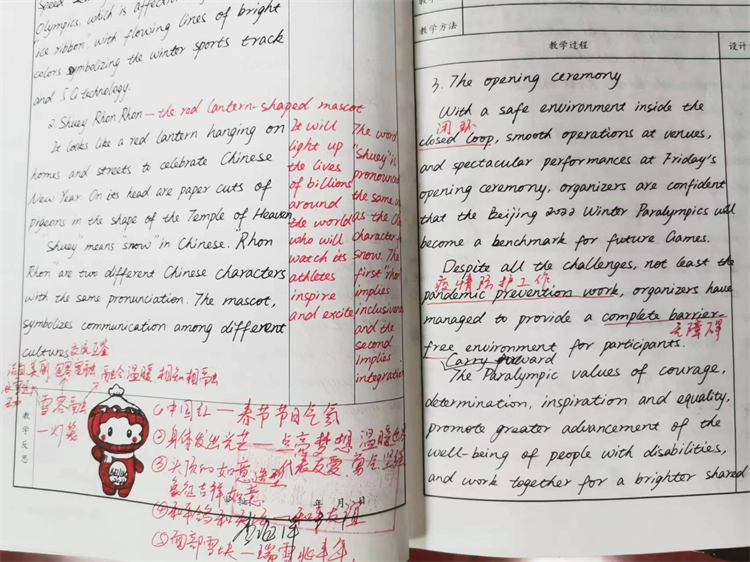 Olympics, which is
ice ribbon" with flowing lines of bright
colors symbolizing the winter sports track
and 5G technology.
2. Shuey Rhon Rhon — the red lantern-shaped mascot
It looks like a red lantern hanging on
homes and streets to celebrate Chinese
New Year. On its head are paper cuts of
pigeons in the shape of the Temple of Heaven
"Shuey" means "snow" in Chinese. "Rhon
Rhon" are two different Chinese characters
with the same pronunciation. The mascot,
symbolizes communication among different
cultures. 交流互鉴
It will
light up
the lives
of billions
around
the world
who will
watch its
athletes
inspire
and excite
The word
"Shuey" is
pronounced
the same w
as the Ch
character
snow. The
first "rhon
implies
inclusiven
and the
second
implies
integration
温暖 相知相融
雪容融
一灯笼
教学反思
①中国红 — 春节节日气氛
②身体发出光芒 — 点亮梦想 温暖
③头顶的如意造型代表友爱 勇气 坚
象征吉祥如意
④和平鸽和
年 月 日
⑤面部雪块 — 瑞雪兆丰年.
教学方法
教学过程
设计
3. The opening ceremony
With a safe environment inside the
闭环
closed loop, smooth operations at venues,
and spectacular performances at Friday's
opening ceremony, organizers are confident
that the Beijing 2022 Winter Paralympics will
become a benchmark for future Games.
Despite all the challenges, not least the
疫情防护工作
pandemic prevention work, organizers have
managed to provide a complete barrier-
无障碍
free environment for participants.
Carry forward
The Paralympic values of courage,
determination, inspiration and equality,
promote greater advancement of the
well-being of people with disabilities,
and work together for a brighter shared